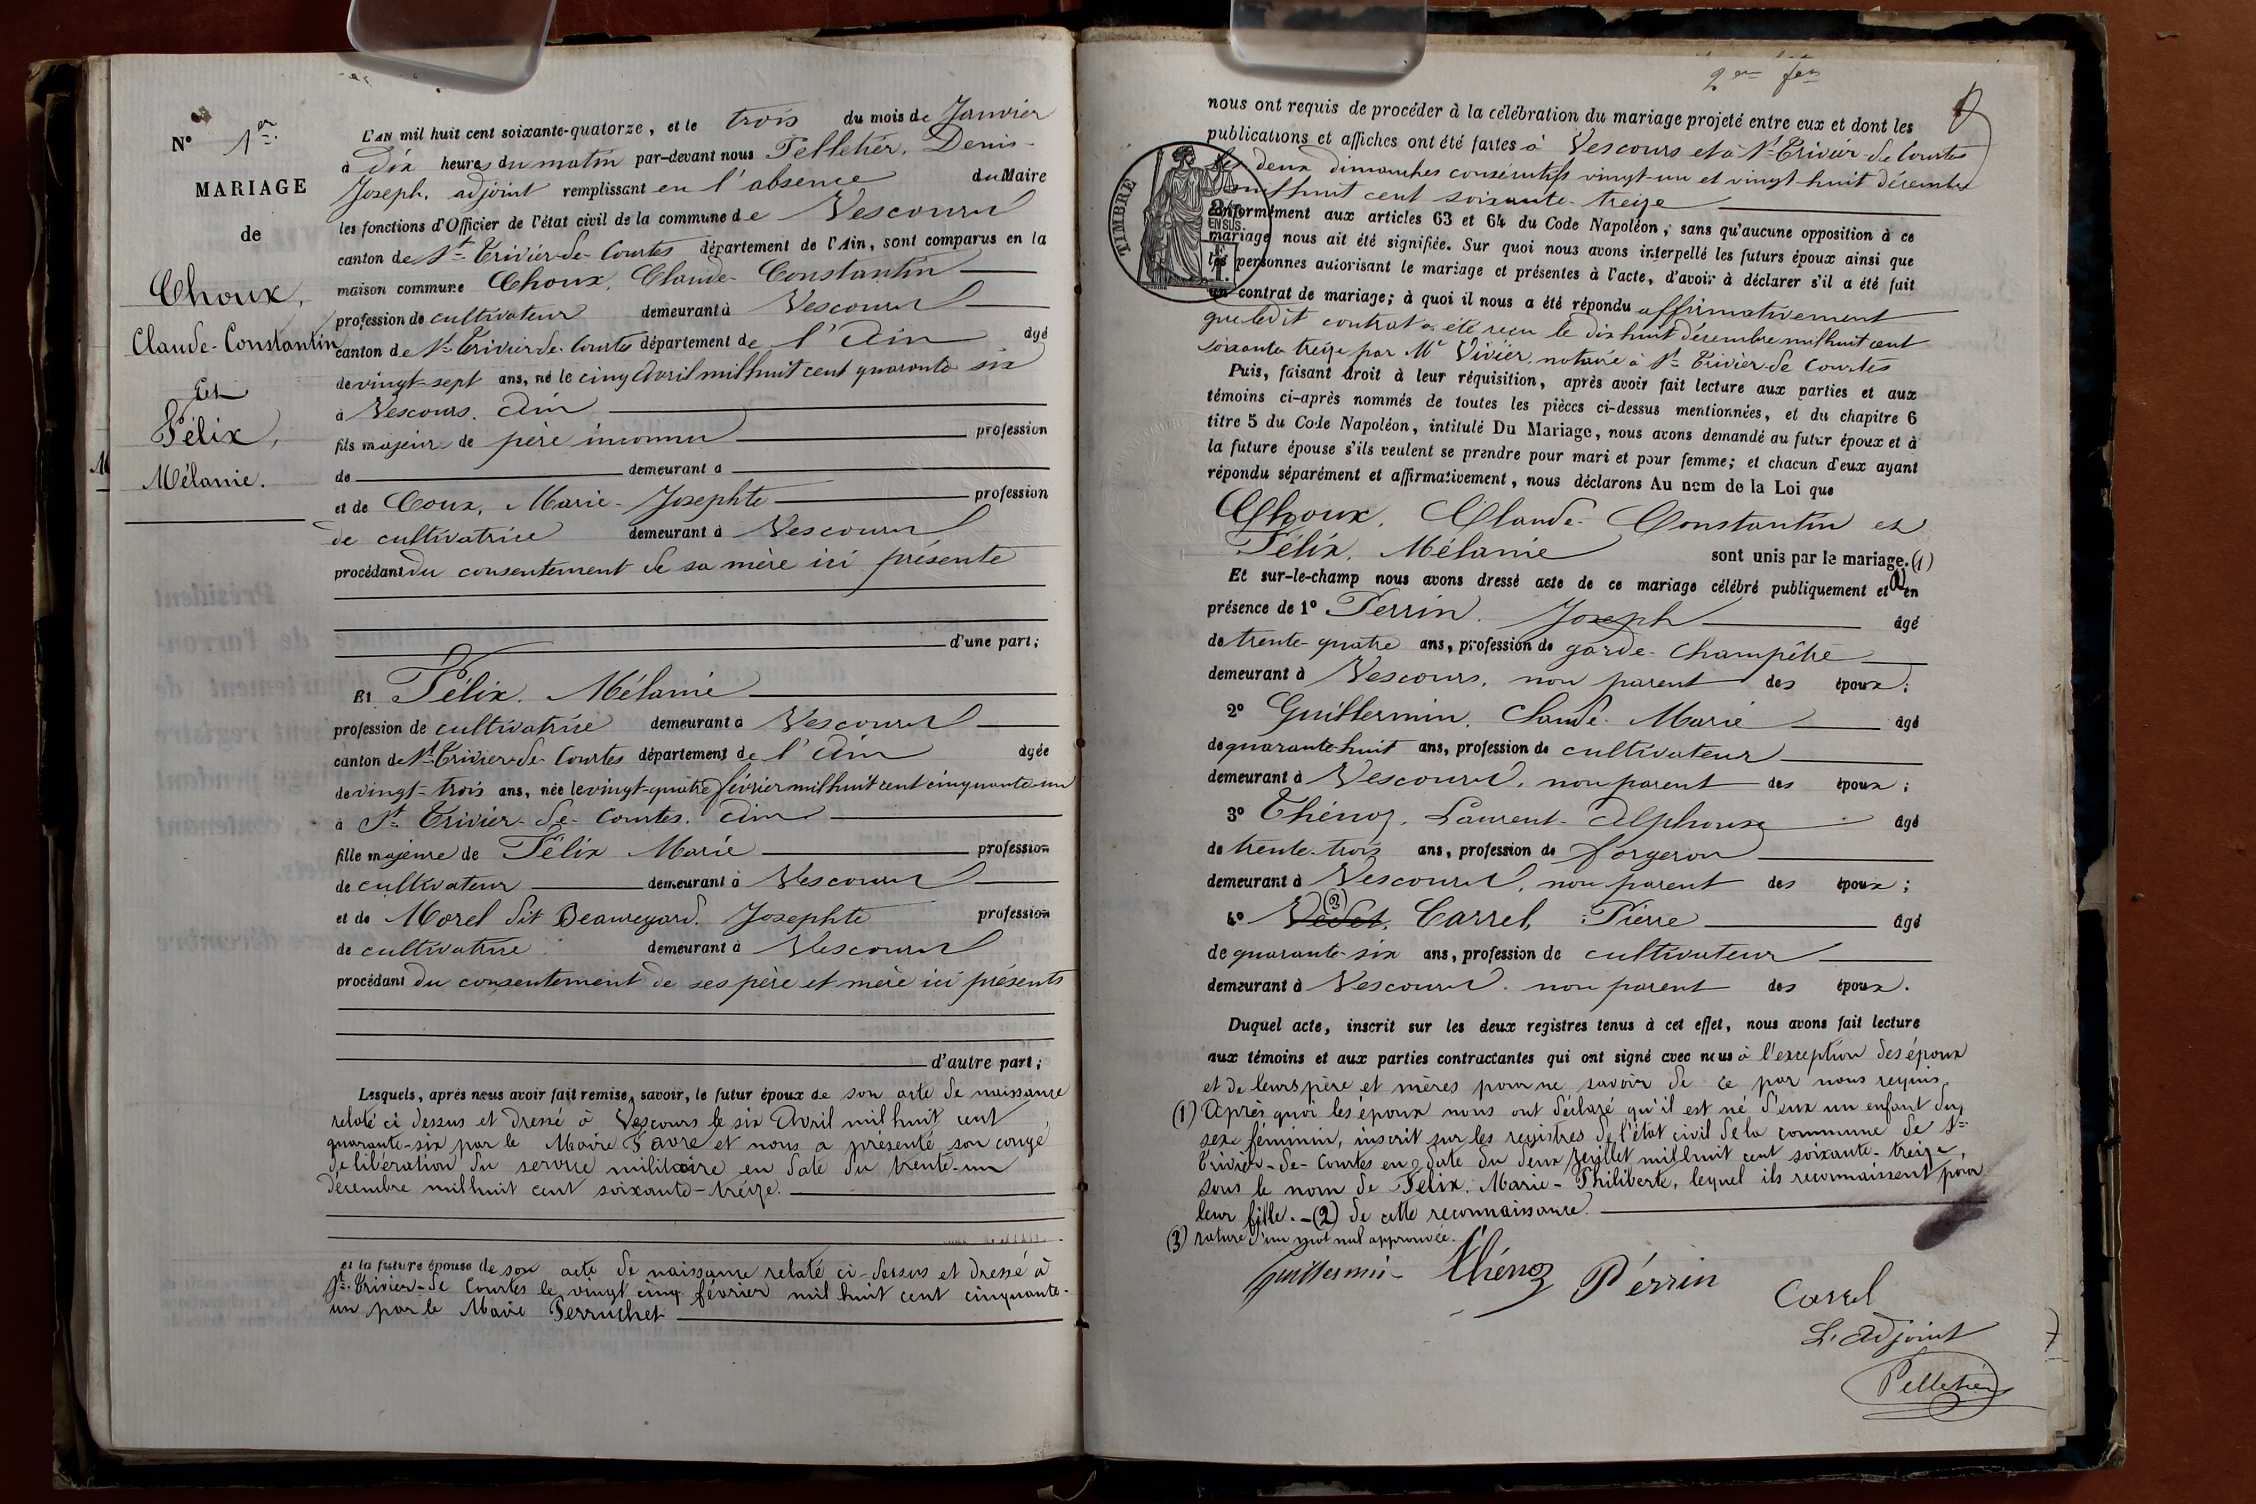 N° 1er.
MARIAGE
de
Choux,
Claude-Constantin
Et
Félix,
Mélanie.
L'AN mil huit cent soixante-quatorze, et le trois du mois de Janvier
à Dix heures du matin par-devant nous Pelletier, Denis-
Joseph, adjoint remplissant en l'absence du Maire
les fonctions d'Officier de l'état civil de la commune de Vescours
canton de St Trivier-de-Courtes département de l'Ain, sont comparus en la
maison commune Choux, Claude-Constantin
profession de cultivateur demeurant à Vescours
canton de St Trivier-de-Courtes département de l'Ain âgé
de vingt-sept ans, né le cinq Avril mil huit cent quarante six
à Vescours, Ain
fils majeur de père inconnu profession
de demeurant à
et de Coux, Marie-Josephte profession
de cultivatrice demeurant à Vescours
procédant du consentement de sa mère ici présente
d'une part;
Et Félix, Mélanie
profession de cultivatrice demeurant à Vescours
canton de St Trivier-de-Courtes département de l'Ain âgée
de vingt-trois ans, née le vingt-quatre février mil huit cent cinquante-un
à St Trivier-de-Courtes, Ain
fille majeure de Félix Marie profession
de cultivateur demeurant à Vescours
et de Morel dit Beauregard, Josephte profession
de cultivatrice demeurant à Vescours
procédant du consentement de ses père et mère ici présents
d'autre part;
Lesquels, après nous avoir fait remise, savoir, le futur époux de son acte de naissance
relaté ci dessus et dressé à Vescours le six Avril mil huit cent
quarante-six par le Maire Favre et nous a présenté son congé
de libération du service militaire en date du trente-un
décembre mil huit cent soixante-treize.
et la future épouse de son acte de naissance relaté ci-dessus et dressé à
St Trivier-de Courtes le vingt cinq février mil huit cent cinquante-
un par le Maire Perruchet
2me fer
nous ont requis de procéder à la célébration du mariage projeté entre eux et dont les
publications et affiches ont été faites à Vescours et à St Trivier-de Courtes
les deux dimanches consécutifs vingt-un et vingt-huit décembre
mil huit cent soixante-treize
conformément aux articles 63 et 64 du Code Napoléon, sans qu'aucune opposition à ce
mariage nous ait été signifiée. Sur quoi nous avons interpellé les futurs époux ainsi que
les personnes autorisant le mariage et présentes à l'acte, d'avoir à déclarer s'il a été fait
un contrat de mariage; à quoi il nous a été répondu affirmativement
que ledit contrat a été reçu le dix huit décembre mil huit cent
soixante treize par Me Vivier, notaire à St Trivier-de Courtes
TIMBRE
2/10
EN SUS.
Puis, faisant droit à leur réquisition, après avoir fait lecture aux parties et aux
témoins ci-après nommés de toutes les pièces ci-dessus mentionnées, et du chapitre 6
titre 5 du Code Napoléon, intitulé Du Mariage, nous avons demandé au futur époux et à
la future épouse s'ils veulent se prendre pour mari et pour femme; et chacun d'eux ayant
répondu séparément et affirmativement, nous déclarons Au nom de la Loi que
Choux, Claude-Constantin et
Félix, Mélanie sont unis par le mariage. (1)
Et sur-le-champ nous avons dressé acte de ce mariage célébré publiquement et (2) en
présence de 1° Perrin, Joseph âgé
de trente-quatre ans, profession de garde-Champêtre
demeurant à Vescours, non parent des époux;
2° Guillermin, Claude-Marie âgé
de quarante-huit ans, profession de cultivateur
demeurant à Vescours, non parent des époux;
3° Thénoz, Laurent-Alphonse âgé
de trente-trois ans, profession de forgeron
demeurant à Vescours, non parent des époux;
4° Vedet, (3) Carrel, Pierre âgé
de quarante-six ans, profession de cultivateur
demeurant à Vescours, non parent des époux.
Duquel acte, inscrit sur les deux registres tenus à cet effet, nous avons fait lecture
aux témoins et aux parties contractantes qui ont signé avec nous à l'exception des époux
et de leurs père et mères pour ne savoir de ce par nous requis
(1) Après quoi les époux nous ont déclaré qu'il est né d'eux un enfant du
sexe féminin, inscrit sur les registres de l'état civil de la commune de St
Trivier-de-Courtes en date du deux Juillet mil huit cent soixante-treize,
sous le nom de Félix, Marie-Philiberte, lequel ils reconnaissent pour
leur fille.-(2) de cette reconnaissance.
(3) rature d'un mot nul approuvée.
Guillermin Thénoz Périn
Carrel
L'adjoint
Pelletier